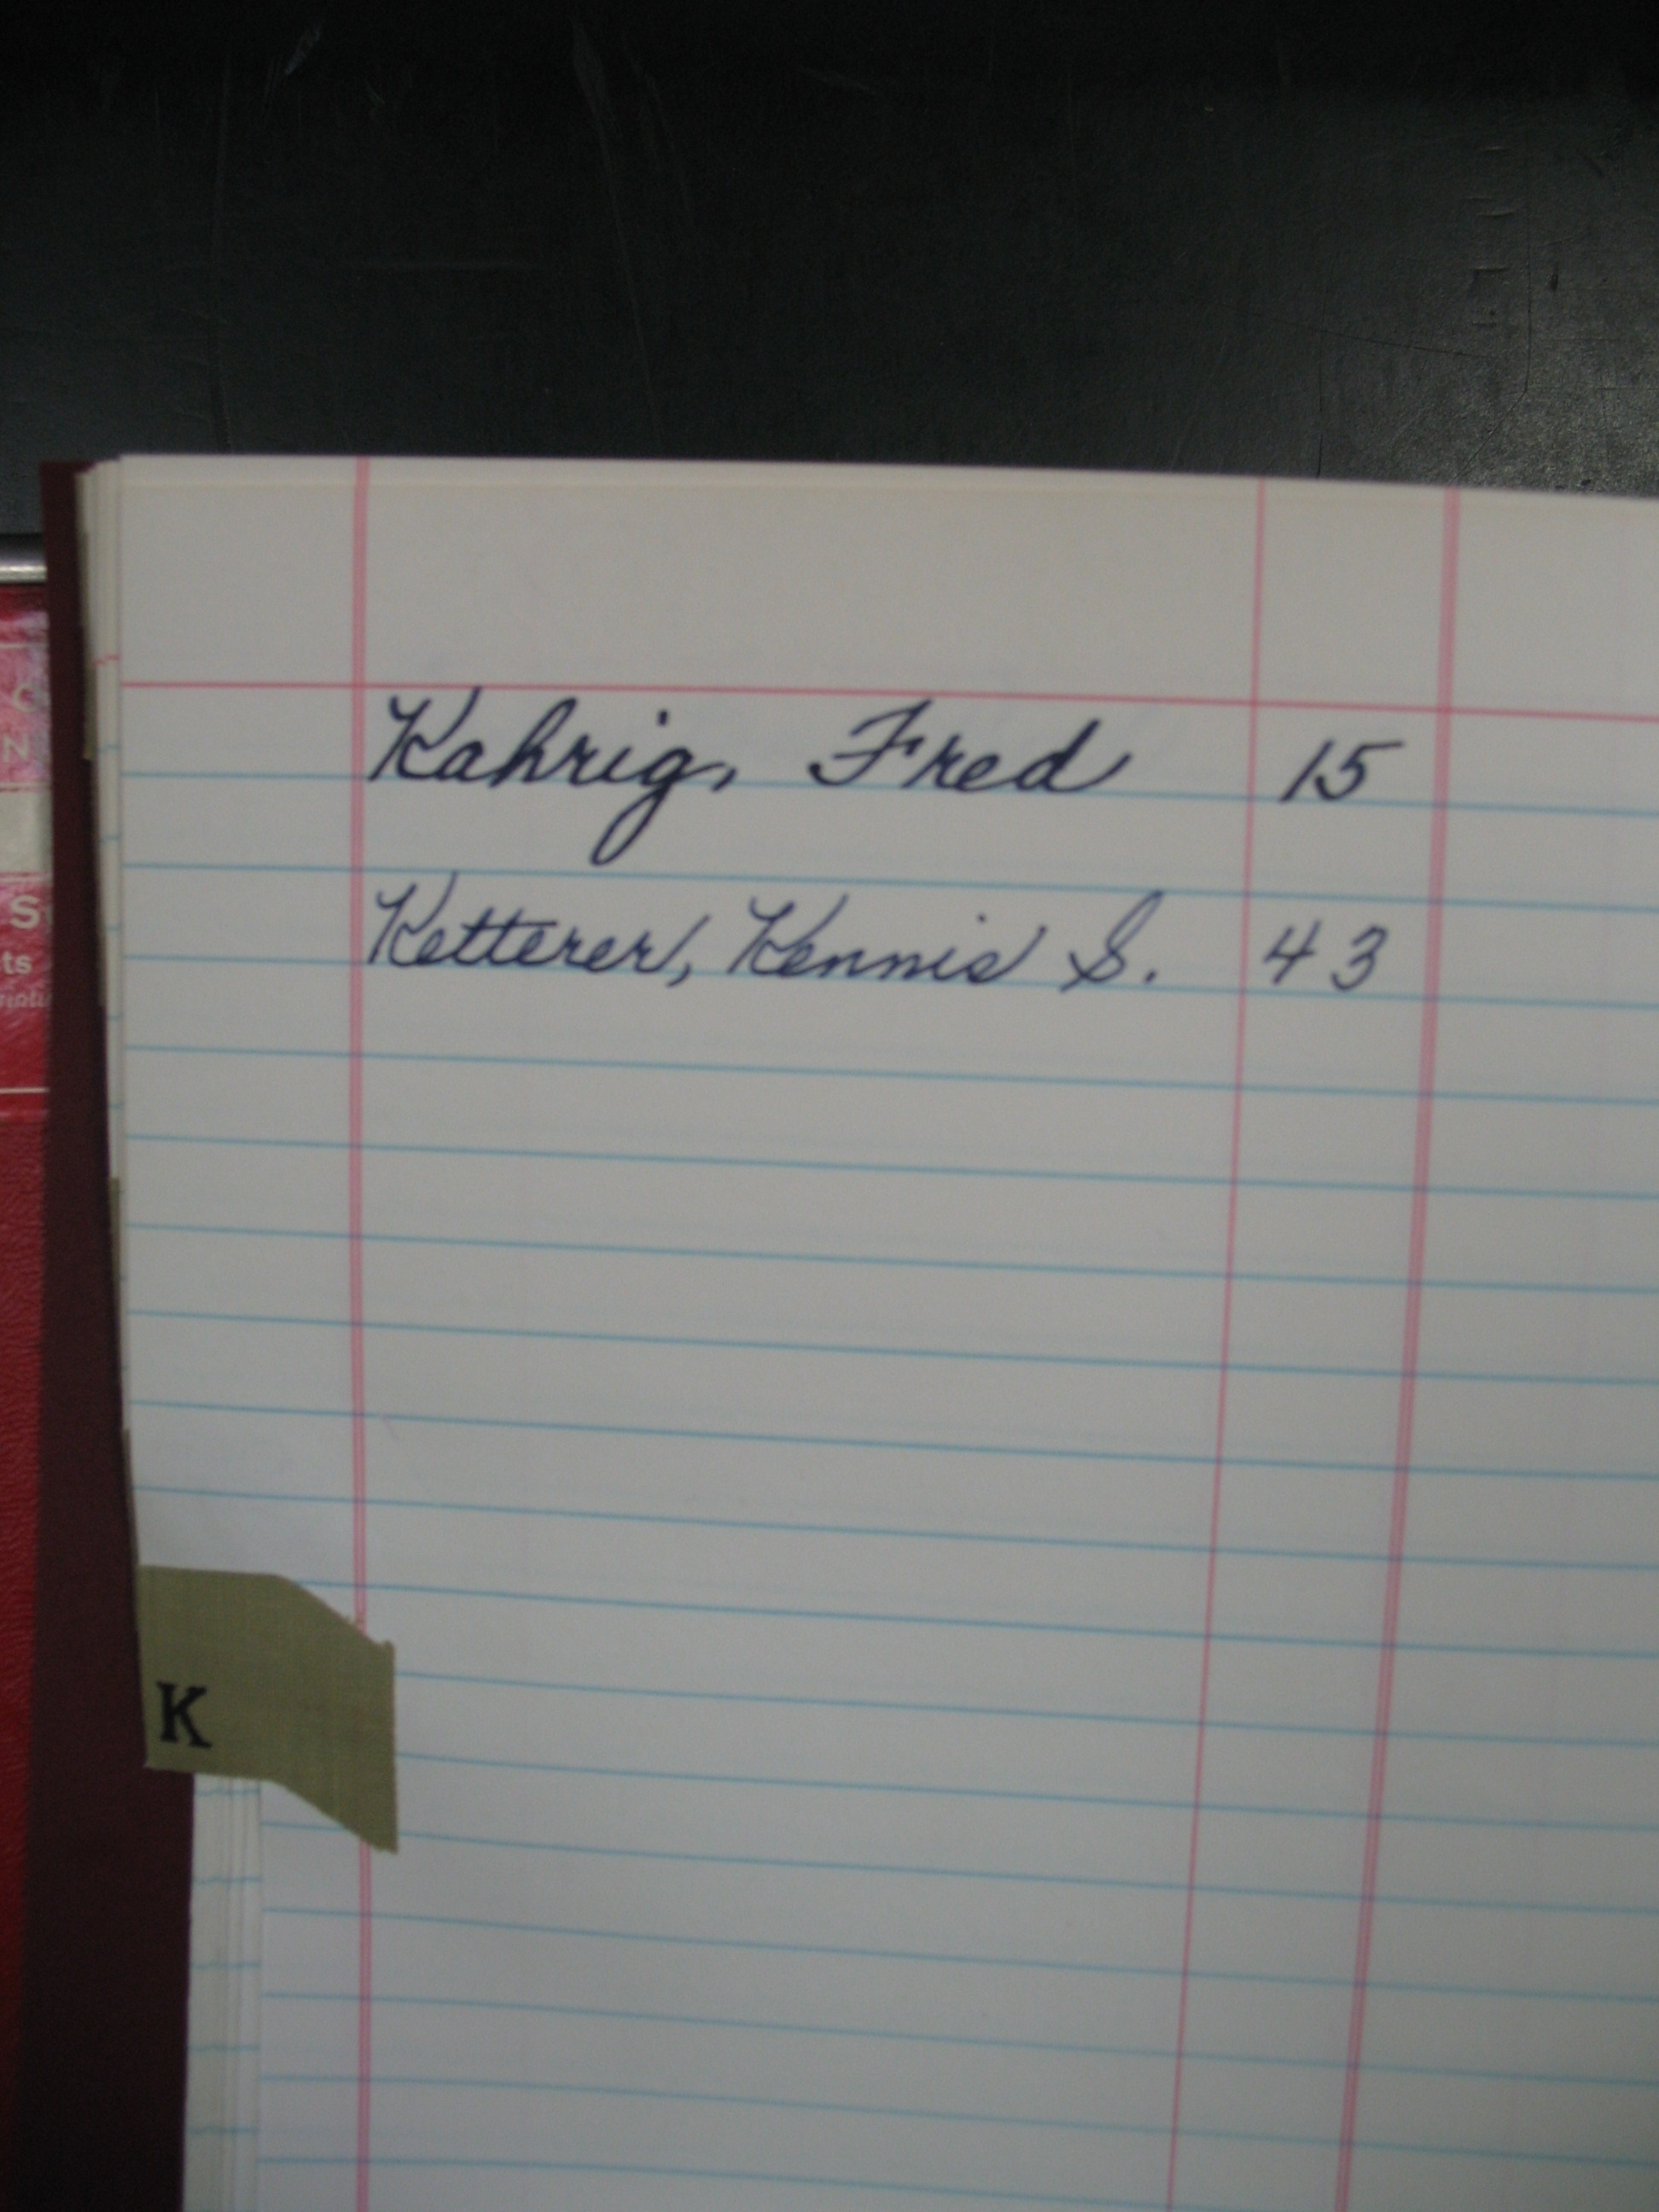 Kahrig, Fred 15
Ketterer, Kennis S. 43
K